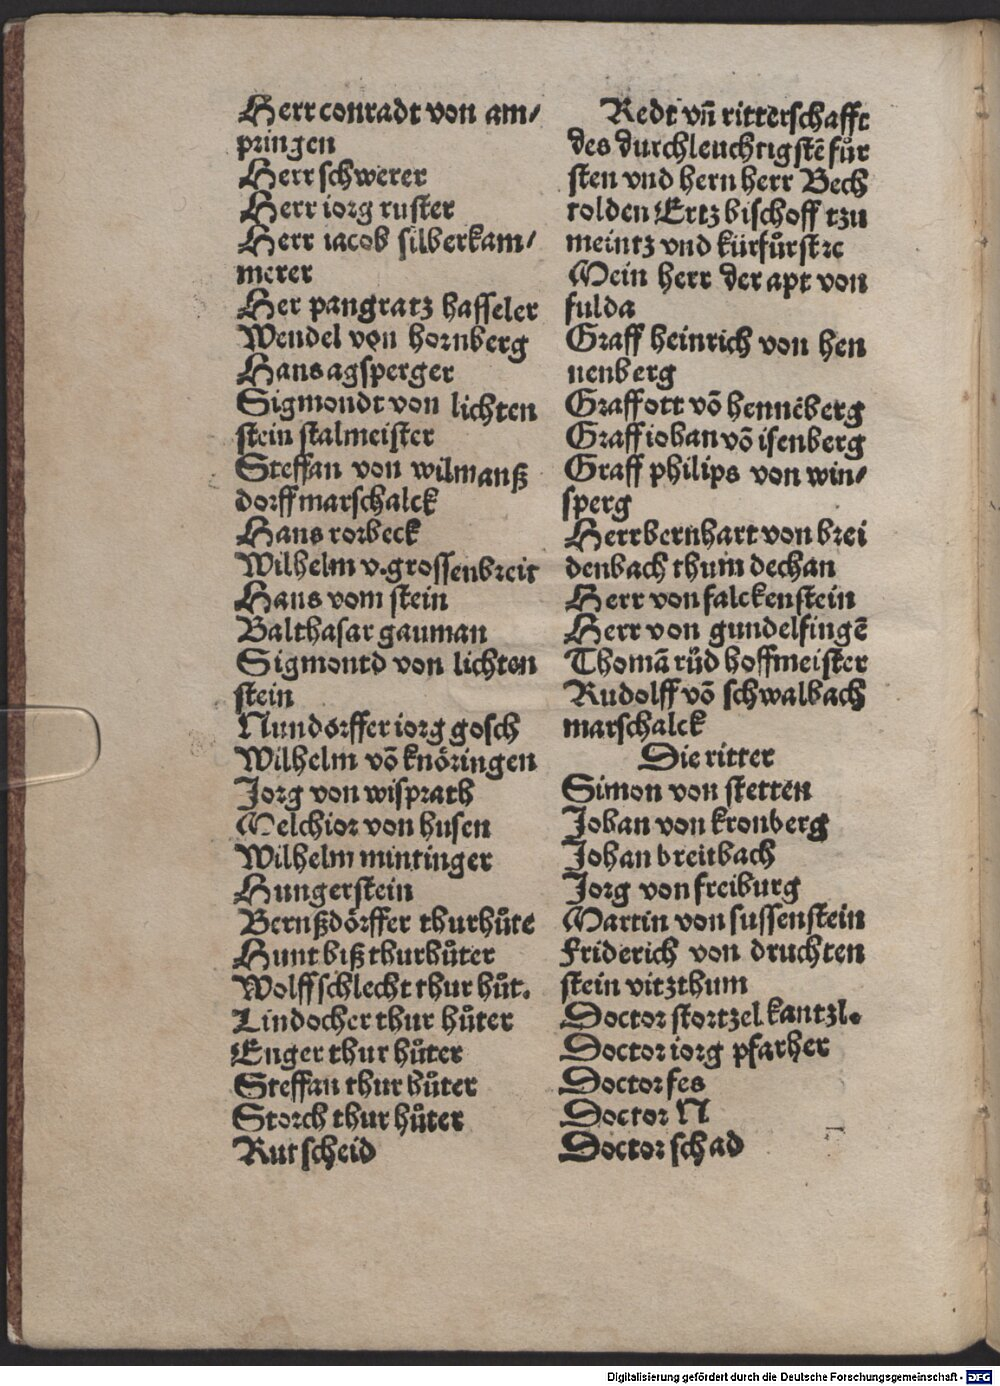 Herr conradt von am⸗
pringen
Herr schwerer
Herr iorg ruster
Herr iacob silberkam⸗
merer
Her pangratz hasseler
Wendel von hornberg
Hans agsperger
Sigmondt von lichten
stein stalmeister
Steffan von wilmanß
dorff marschalck
Hans rorbeck
Wilhelm v. grossenbreit
Hans vom stein
Balthasar gauman
Sigmontd von lichten
stein
Nundorffer iorg gosch
Wilhelm vō knöringen
Jorg von wisprath
Melchior von husen
Wilhelm mintinger
Hungerstein
Bernßdörffer thurhůte
Hunt biß thurhůter
Wolff schlecht thur hůt.
Lindocher thur hůter
Enger thur hůter
Steffan thur hůter
Storch thur hůter
Rut scheid
Redt vn̄ ritterschafft
des durchleuchtigstē fůr
sten vnd hern herr Bech
tolden Ertzbischoff tzu
meintz vnd kürfůrst ꝛc
Mein herr der apt von
fulda
Graff heinrich von hen
nenberg
Graff ott vō hennēberg
Graff iohan vō isenberg
Graff philips von win⸗
sperg
Herr bernhart von brei
denbach thum dechan
Herr von falckenstein
Herr von gundelfingē
Thomā růd hoffmeister
Rudolff vō schwalbach
marschalck
Die ritter
Simon von stetten
Johan von kronberg
Johan breitbach
Jorg von freiburg
Martin von sussenstein
Friderich von druchten
stein vitzthum
Doctor stortzel kantzl.
Doctor iorg pfarher
Doctor fes
Doctor N
Doctor schad
Digitalisierung gefördert durch die Deutsche Forschungsgemeinschaft - DFG